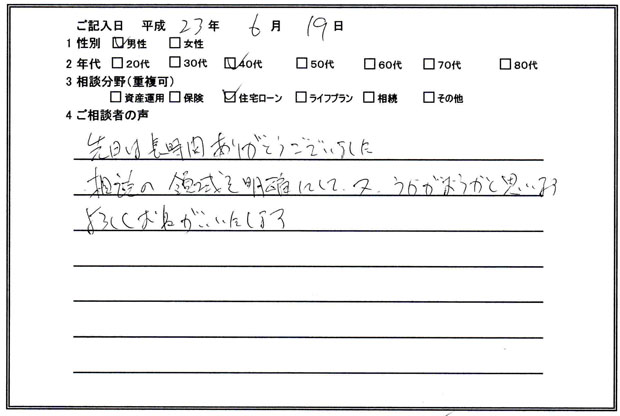 ご記入日 平成 23年 6月 19日
1 性別 ☑男性 □女性
2 年代 □20代 □30代 ☑40代 □50代 □60代 □70代 □80代
3 相談分野(重複可)
□資産運用 □保険 ☑住宅ローン □ライフプラン □相続 □その他
4 ご相談者の声
先日は長時間ありがとうございました
相談の領域を明確にして、又、うかがおうかと思います
よろしくおねがいいたします